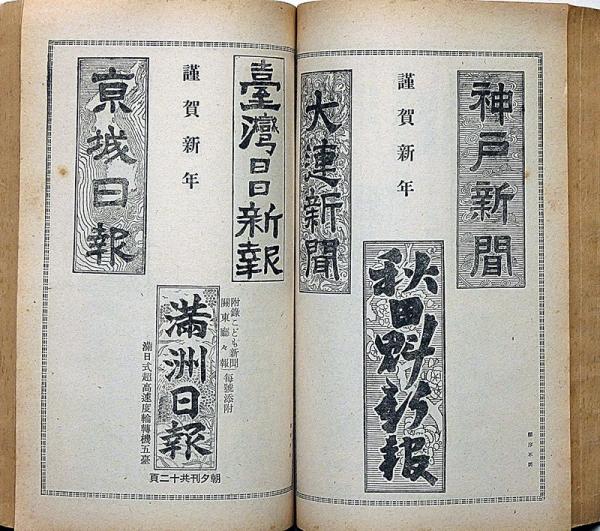 神戸新聞
謹賀新年
大連新聞
秋田魁新報
順序不同
臺灣日日新報
謹賀新年
京城日報
附錄こども新聞
關東廳々報
每號添附
滿洲日報
滿日式超高速度輪轉機五臺
朝夕刊共十二頁